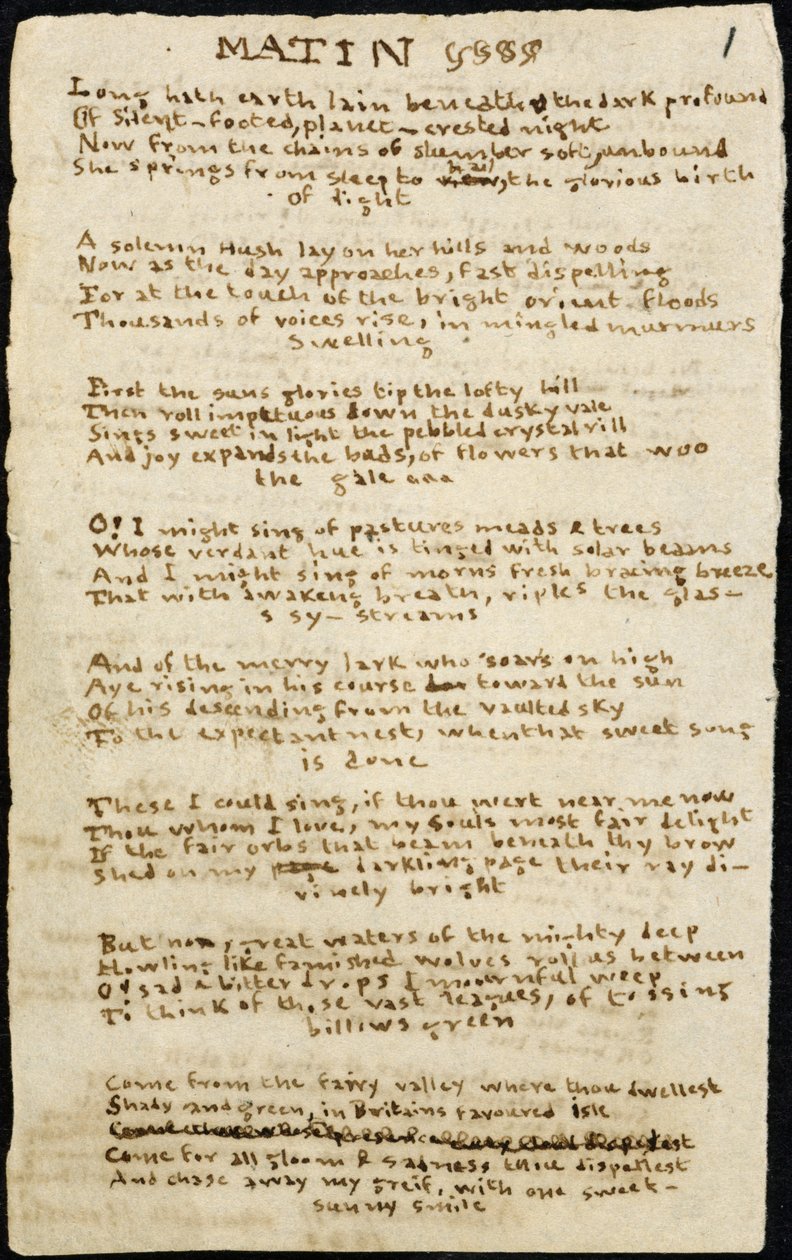 MATIN
1
Long hath earth lain beneath the dark profound
Of Silent-footed, planet-crested night
Now from the chains of slumber soft, unbound
She springs from sleep to hail, the glorious birth
of Light
A solemn Hush lay on her hills and woods
Now as the day approaches, fast dispelling
For at the touch of the bright orient floods
Thousands of voices rise, in mingled murmurs
swelling
First the suns glories tip the lofty hill
Then roll impetuous down the dusky vale
Sings sweet in light the pebbled crystal rill
And joy expands the buds, of flowers that woo
the gale
O! I might sing of pastures meads & trees
Whose verdant hue is tinged with solar beams
And I might sing of morns fresh bracing breeze
That with awakeng breath, riples the glas-
s sy- streams
And of the merry lark who soars on high
Aye rising in his course toward the sun
Of his descending from the vaulted sky
To the expectant nest, when that sweet song
is done
These I could sing, if thou wert near me now
Thou whom I love, my souls most fair delight
If the fair orbs that beam beneath thy brow
Shed on my page darkling page their ray di-
vinely bright
But now, great waters of the mighty deep
Howling like famished wolves roll us between
O! sad & bitter drops I mournful weep
To think of those vast leagues, of tossing
billows green
Come from the fairy valley where thou dwellest
Shady and green, in Britains favoured isle
Come for all gloom & sadness thou dispellest
And chase away my greif, with one sweet-
sunny smile